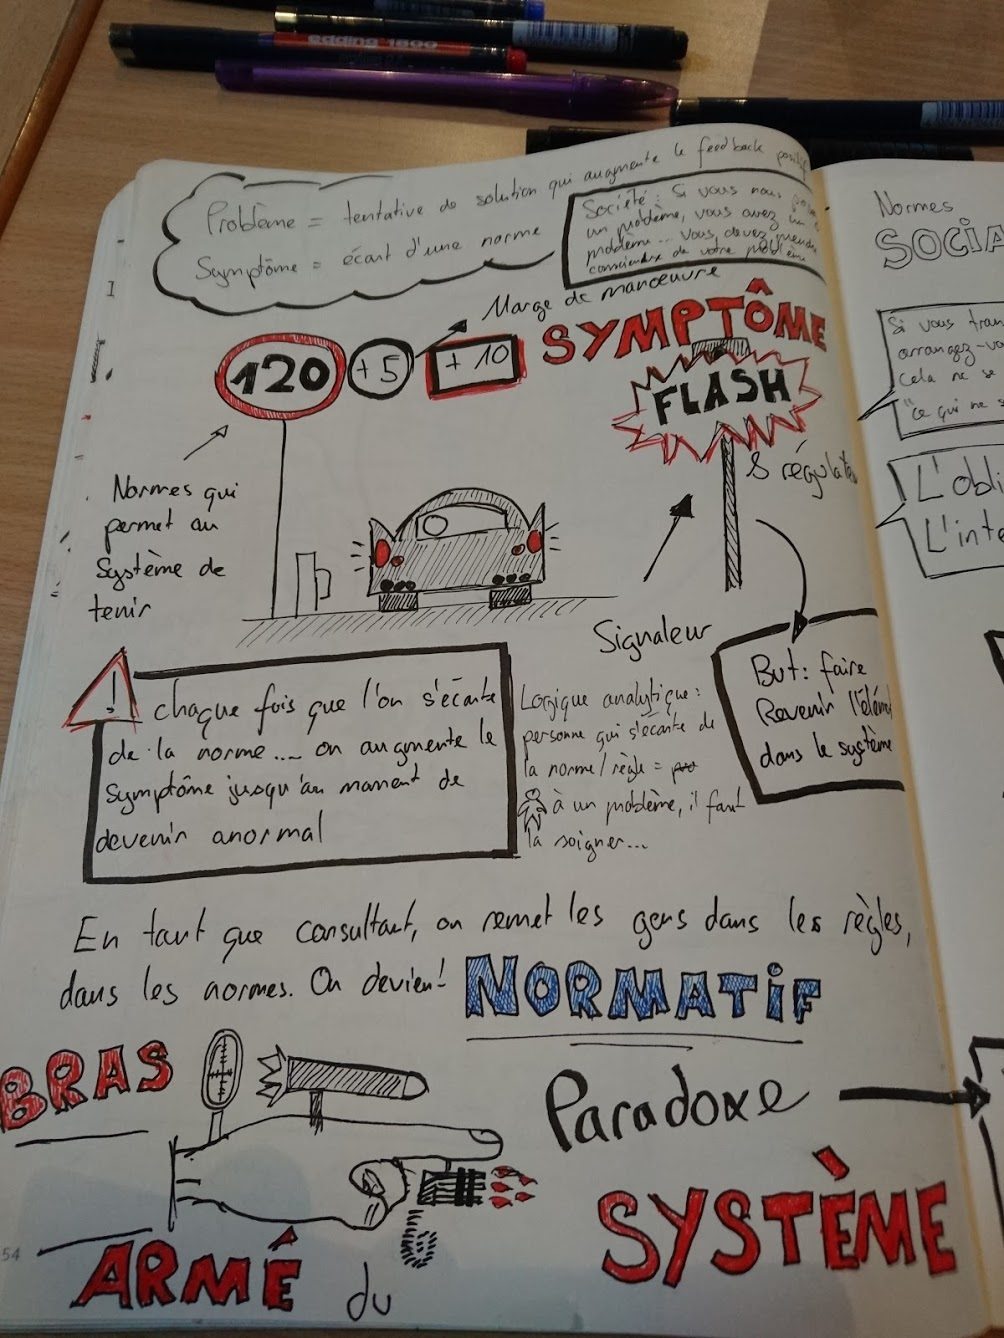 edding 1800
Problème = tentative de solution qui augmente le feedback positif
Symptôme = écart d'une norme
Société : Si vous nous
un problème, vous avez un
problème... Vous devez prendre
conscience de votre problème
Marge de manœuvre
SYMPTÔME
120 +5 +10
FLASH
Normes qui
permet au
Système de
tenir
Signaleur
But : faire
Revenir l'élément
dans le système
! chaque fois que l'on s'écarte
de la norme... on augmente le
symptôme jusqu'au moment de
devenir anormal
Logique analytique :
personne qui s'écarte de
la norme/règle =
à un problème, il faut
la soigner...
En tant que consultant, on remet les gens dans les règles,
dans les normes. On devient
NORMATIF
BRAS
ARMÉ du
Paradoxe
SYSTÈME
54
Normes
SOCIA
Si vous tran
arrangez-vo
Cela ne se
"ce qui ne s
L'obli
L'inte